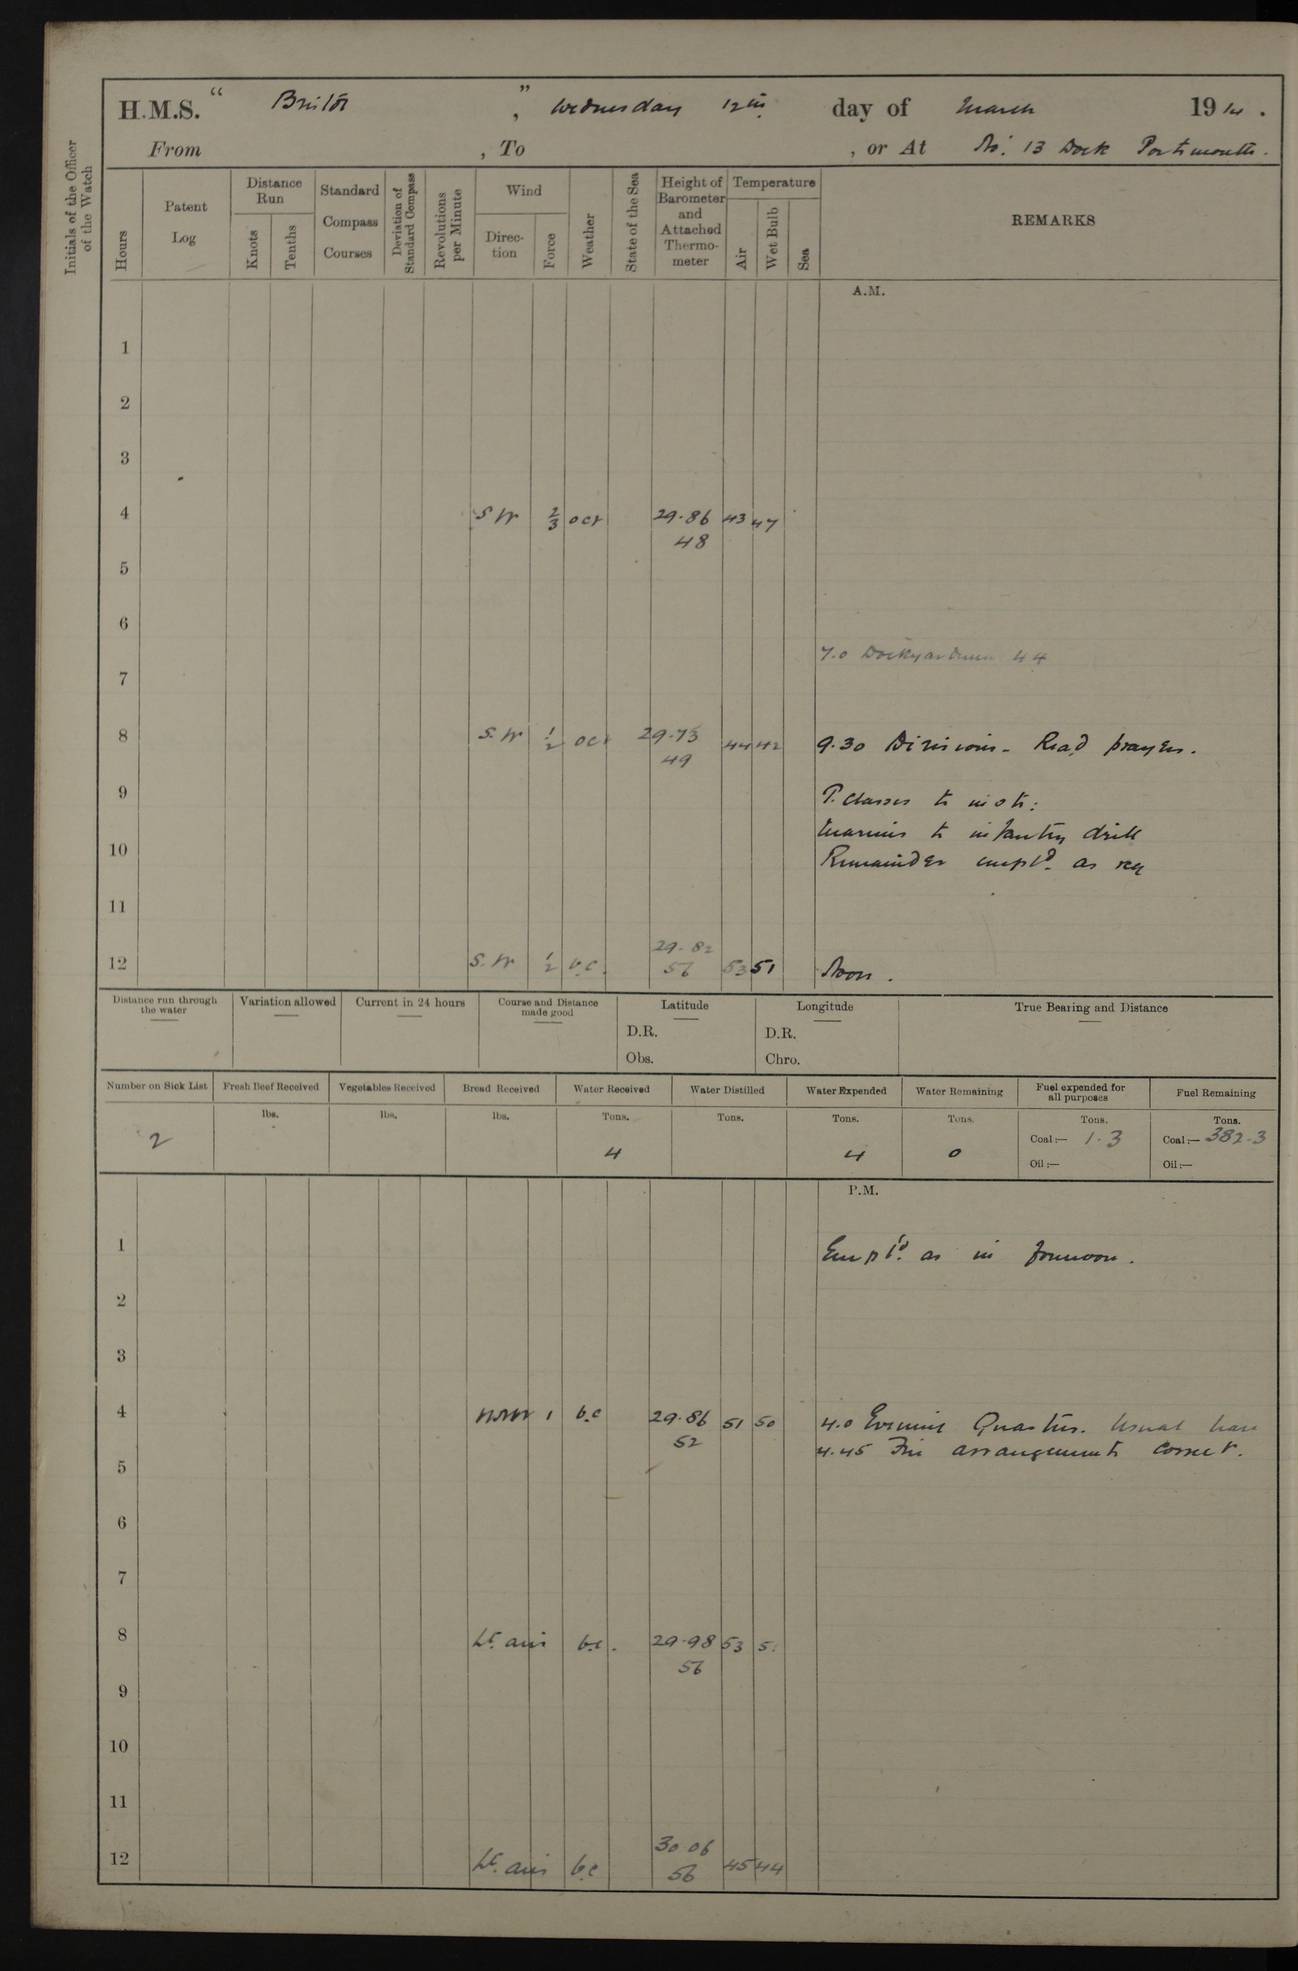 H.M.S. " Bristol ", Wednesday 12th day of March 1914.
From , To , or At No. 13 Dock Portsmouth.
Initials of the Officer of the Watch
Hours
Patent Log
Distance Run
Knots
Tenths
Standard Compass Courses
Deviation of Standard Compass
Revolutions per Minute
Wind
Direc-tion
Force
Weather
State of the Sea
Height of Barometer and Attached Thermo-meter
Temperature
Air
Wet Bulb
Sea
REMARKS
A.M.
1
2
3
4 S.W 2/3 ocr 29.86 43 47
48
5
6
7.0 Dockyardmen 44
7
8 S.W 1/2 ocr 29.73 44 42 9.30 Divisions - Read prayers.
49
9 P. classes to
Marines to infantry drill
10
Remainder empld. as req
11
29.82
12 S.W 1/2 b.c. 56 53 51 Noon.
Distance run through the water
Variation allowed
Current in 24 hours
Course and Distance made good
Latitude
D.R.
Obs.
Longitude
D.R.
Chro.
True Bearing and Distance
Number on Sick List
Fresh Beef Received
Vegetables Received
Bread Received
Water Received
Water Distilled
Water Expended
Water Remaining
Fuel expended for all purposes
Fuel Remaining
lbs. lbs. lbs. Tons. Tons. Tons. Tons. Tons. Tons.
2 4 4 0 Coal:— 1.3 Coal:— 382.3
Oil:— Oil:—
P.M.
1 Empld. as in forenoon.
2
3
4 NNW 1 b.c 29.86 51 50 4.0 Evening Quarters. Usual
52 4.45 Fire arrangements correct.
5
6
7
8 Lt. airs b.c. 29.98 53
56
9
10
11
30.06
12 Lt. airs b.c 56 45 44